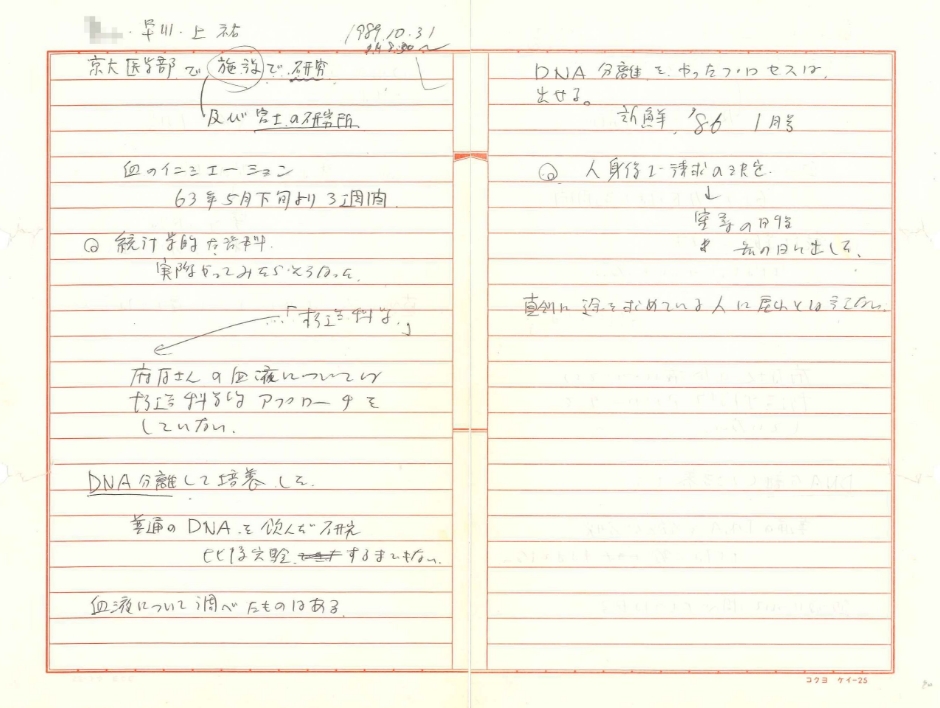 ・早川・上祐
1989.10.31
京大医学部で施設で研究
及び富士の研究所
血のイニシエーション
63年5月下旬より3週間
Q 統計学的な資料
実際やってみたらそうなった
…「超越科学」
麻原さんの血液については
アプローチを
していない.
DNA分離して培養した.
普通のDNAを飲んだ研究
比較実験 するまでもない.
血液について調べたものはある
DNA分離をやったプロセスは,
出せる。
新鮮, '86 1月号
Q 人身保護請求の決定
↓
の日
の日に出した.
真剣に道を求めている人に
コクヨ ケイ-25